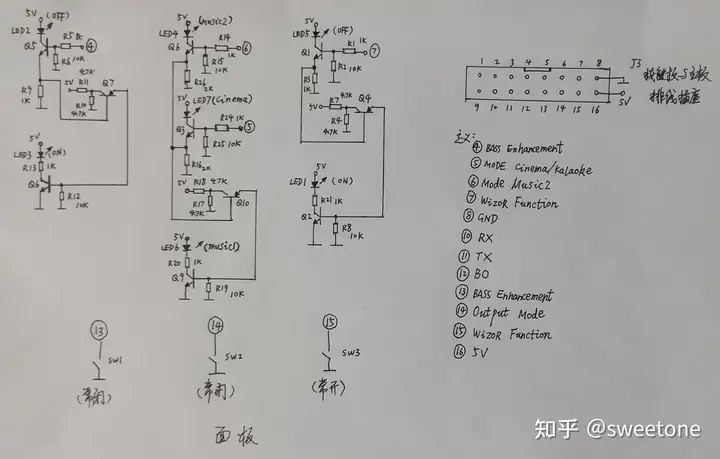 5V
LED2 (OFF)
Q5
R5 1K
④
R6 10K
47K
5V R11
Q7
R9
1K
R10
47K
5V
LED3 (ON)
R13 1K
Q6
R12
10K
5V (Music2)
LED4
R14
1K
Q6
⑥
R15
10K
R26
2K
LED7 (Cinema)
Q3
R24 1K
⑤
R25 10K
R16 2K
5V R18 47K
R17
47K
Q10
5V
LED6 (music1)
R20 1K
Q9
R19
10K
5V
LED5 (OFF)
Q1
R1
1K
⑦
R2 10K
R3
1K
5V R7
47K
Q4
R4
47K
5V
LED1 (ON)
R21 1K
Q2
R8
10K
⑬
SW1
(常闭)
⑭
SW2
(常闭)
⑮
SW3
(常开)
面板
1 2 3 4 5 6 7 8
9 10 11 12 13 14 15 16
J3
5V
按键板与主板
排线插座
主义:
④ BASS Enhancement
⑤ MODE Cinema/kalaoke
⑥ Mode Music2
⑦ WizoR Function
⑧ GND
⑩ RX
⑪ TX
⑫ BO
⑬ BASS Enhancement
⑭ Output Mode
⑮ WizoR Function
⑯ 5V
知乎 @sweetone